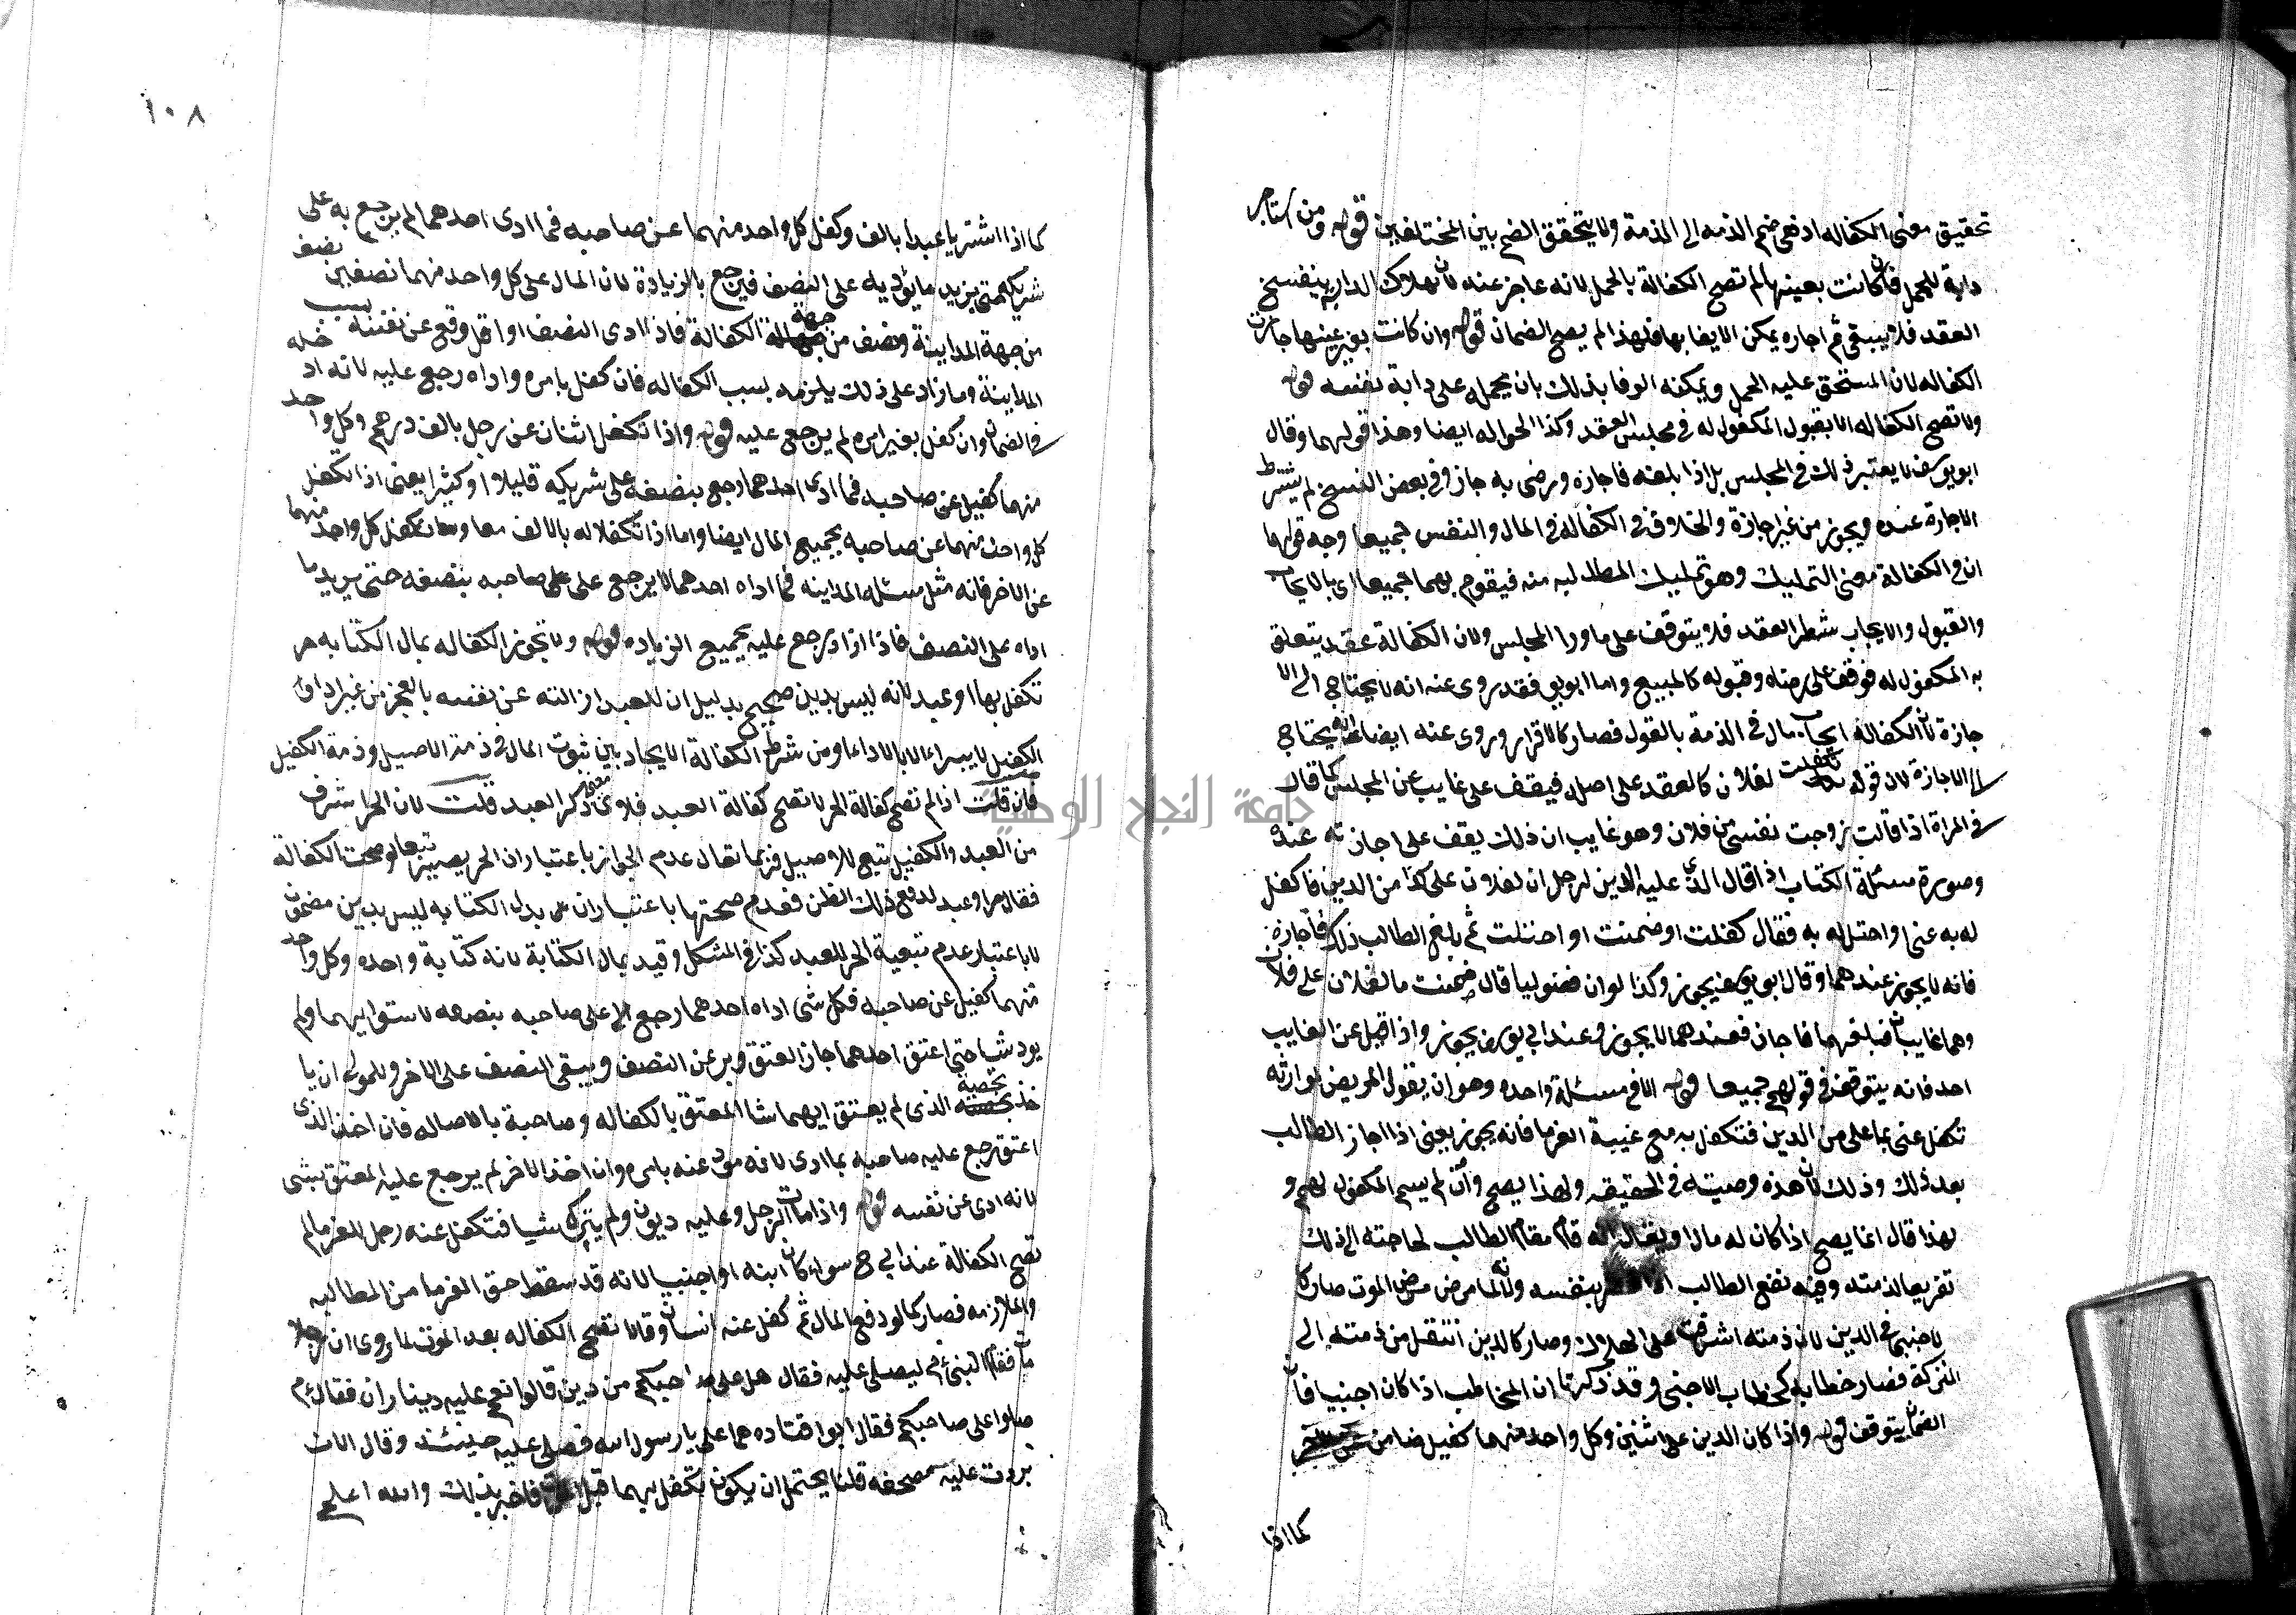 تحقيق معنى الكفاله اذ هي ضم الذمه الى الذمة ولا يتحقق الضم بين المختلفين قوله ومن استاجر
دابة للحمل فان كانت بعينها لم تصح الكفالة بالحمل لانه عاجز عنه لان بهلاك الدابه ينفسخ
العقد فلا يبقى ثم اجاره يمكن الايفا بها فلهذا لم يصح الضمان قوله وان كانت بغير عينها جازت
الكفاله لان المستحق عليه الحمل ويمكنه الوفا بذلك بان يحمله على دابة نفسه قوله
ولا تصح الكفاله الا بقبول المكفول له في مجلس العقد وكذا الحواله ايضا وهذا قولهما وقال
ابو يوسف لا يعتبر ذلك في المجلس بل اذا بلغه فاجازه ورضى به جاز وفي بعض النسخ لم يشترط
الاجازة عنده ويجوز من غير اجازة والخلاف في الكفاله في المال والنفس جميعا وجه قولهما
ان في الكفالة معنى التمليك وهو تمليك المطالبه منه فيقوم بهما جميعا اي بالايجاب
والقبول والايجاب شطر العقد فلا يتوقف على ما ورا المجلس ولان الكفالة عقد يتعلق
به المكفول له فوقف على رضاه وقبوله كالمبيع واما ابو يوسف فقد روى عنه انه لا يحتاج الى الا
جازة لان الكفاله ايجاب مال في الذمة بالقول فصار كالاقرار وروى عنه ايضا انه يحتاج
الى الاجازة لان قوله تكفلت لفلان كالعقد على اصله فيقف على غايب عن المجلس كما قال
في المراة اذا قالت زوجت نفسي من فلان وهو غايب ان ذلك يقف على اجازته عنده
وصورة مسئلة الكتاب اذا قال الذي عليه الدين لرجل ان لفلان على كذا من الدين فاكفل
له به عني او احتل له به فقال كفلت او ضمنت او احتلت ثم بلغ الطالب ذلك فاجازه
فانه لا يجوز عندهما وقال ابو يوسف يجوز وكذا لو ان فضوليا قال ضمنت ما لفلان على فلان
وهما غايبان فبلغهما فاجازا فعندهما لا يجوز وعند ابي يوسف يجوز واذا قبل عن الغايب
احد فانه يتوقف في قولهم جميعا قوله الا في مسئلة واحده وهو ان يقول المريض لوارثه
تكفل عني بما على من الدين فتكفل به مع غيبة الغرما فانه يجوز يعني اذا اجاز الطالب
بعد ذلك وذلك لان هذه وصيته في الحقيقه ولهذا يصح وان لم يسم المكفول لهم و
لهذا قال انما يصح اذا كان له مال او يقال انه قام مقام الطالب لحاجته الى ذلك
تفريغا لذمته وفيه نفع الطالب بنفسه ولانه لما مرض مرض الموت صار كا
لاجنبي في الدين لان ذمته اشرفت على الهلاك وصار كالدين انتقل من ذمته الى
التركة فصار خطابه كخطاب الاجنبي وقد ذكرنا ان المخاطب اذا كان اجنبيا فان
الضمان يتوقف قوله واذا كان الدين على اثنين وكل واحد منهما كفيل ضامن عن الاخر
كما اذا
١٠٨
كما اذا اشتريا عبدا بالف وكفل كل واحد منهما عن صاحبه فما ادى احدهما لم يرجع به على
شريكه حتى يزيد ما يؤديه على النصف فيرجع بالزيادة لان المال على كل واحد منهما نصفين نصف
من جهة المداينة ونصف من جهة الكفالة فاذا ادى النصف او اقل وقع عن نفسه بسبب
المداينة وما زاد على ذلك يلزمه بسبب الكفاله فان كفل بامره واداه رجع عليه لانه ادخله
في الضمان وان كفل بغير امره لم يرجع عليه قوله واذا تكفل اثنان عن رجل بالف درهم وكل واحد
منهما كفيل عن صاحبه فما ادى احدهما رجع بنصفه على شريكه قليلا او كثيرا يعني اذا تكفل
كل واحد منهما عن صاحبه بجميع المال ايضا واما اذا تكفلا له بالالف معا وكفل كل واحد منهما
عن الاخر فانه مثل مسئله المداينه فما اداه احدهما لا يرجع على على صاحبه بنصفه حتى يزيد ما
اداه على النصف فاذا ازاد يرجع عليه بجميع الزياده قوله ولا تجوز الكفاله بمال الكتابه حر
تكفل بها او عبد لانه ليس بدين صحيح بدليل ان للعبد ازالته عن نفسه بالعجز من غير اداء
الكفيل لا يبراء الا بالاداء او من شرط الكفالة الايجاد بين ثبوت المال في ذمة الاصيل وذمة الكفيل
فان قلت اذا لم تصح كفالة الحر لا تصح كفالة العبد فلاي معنى ذكر العبد قلت لان الحر اشرف
من العبد والكفيل تبع للاصيل فربما يقال عدم الجواز باعتبار ان الحر يصير تبعا لو صحت الكفالة
فقال حر او عبد لدفع ذلك الظن فعدم صحتها باعتبار ان بدل الكتابه ليس بدين مضمون
لا باعتبار عدم تبعية الحر للعبد كذا في المشكل وقيد بمال الكتابة لانه كتابة واحده وكل واحد
منهما كفيل عن صاحبه فكل شى اداه احدهما رجع على صاحبه بنصفه لاستوايهما ولم
يود شيا حتى اعتق احدهما جاز العتق وبر عن النصف ويبقى النصف على الاخر وللمولى ان يا
خذ بحصة الذى لم يعتق ايهما شا المعتق بالكفاله وصاحبة بالاصاله فان اخذ الذى
اعتق رجع عليه صاحبه بما ادى لانه مود عنه بامره وان اخذ الاخر لم يرجع عليه المعتق بشى
لانه ادى عن نفسه قوله واذا مات الرجل وعليه ديون ولم يترك شيا فتكفل عنه رجل للغرما لم
تصح الكفالة عند ابي ح سواء كان ابنه او اجنبيا لانه قد سقط حق الغرما من المطالبه
والملازمه فصار كما لو دفع المال ثم كفل عنه انسان وقالا تصح الكفاله بعد الموت لما روى ان رجلا
مات فقام النبيء م ليصلى عليه فقال هل على صاحبكم من دين قالوا نعم عليه ديناران فقال ء م
صلوا على صاحبكم فقال ابوا قتاده هما على يا رسول الله فصلى عليه حينئذ وقال الان
بردت عليه مضجعه قلنا يحتمل ان يكون تكفل بهما قبل الموت فاخبر بذلك والله اعلم
جامعة النجاح الوطنية